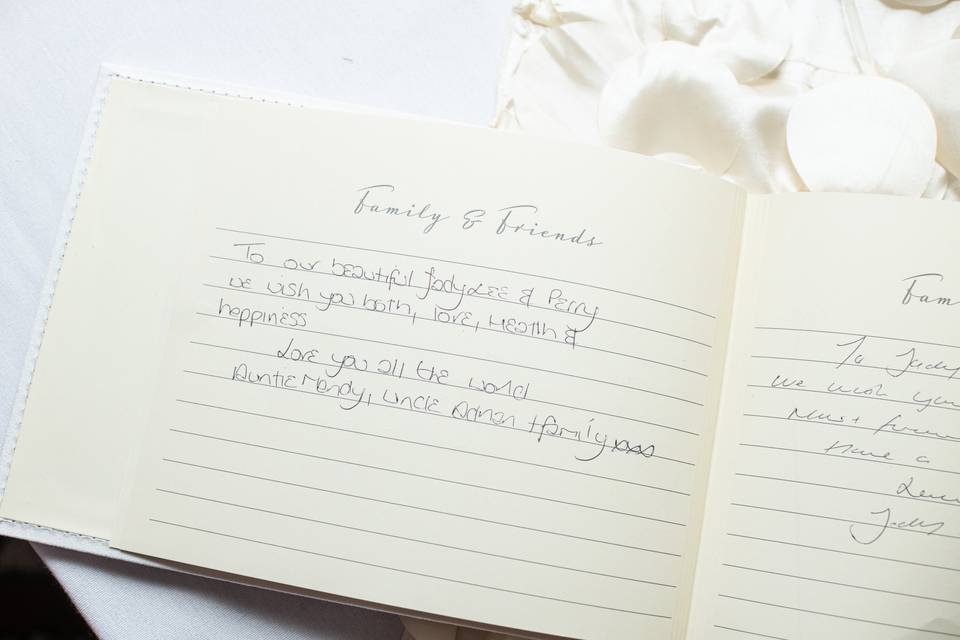 Family & Friends
To our beautiful JodyLee & Perry
we wish you both, love, Health &
happiness
Love you all the world
Auntie Mandy, uncle Adrian + family xxx
Fam
To Jody
we wish you
Have a